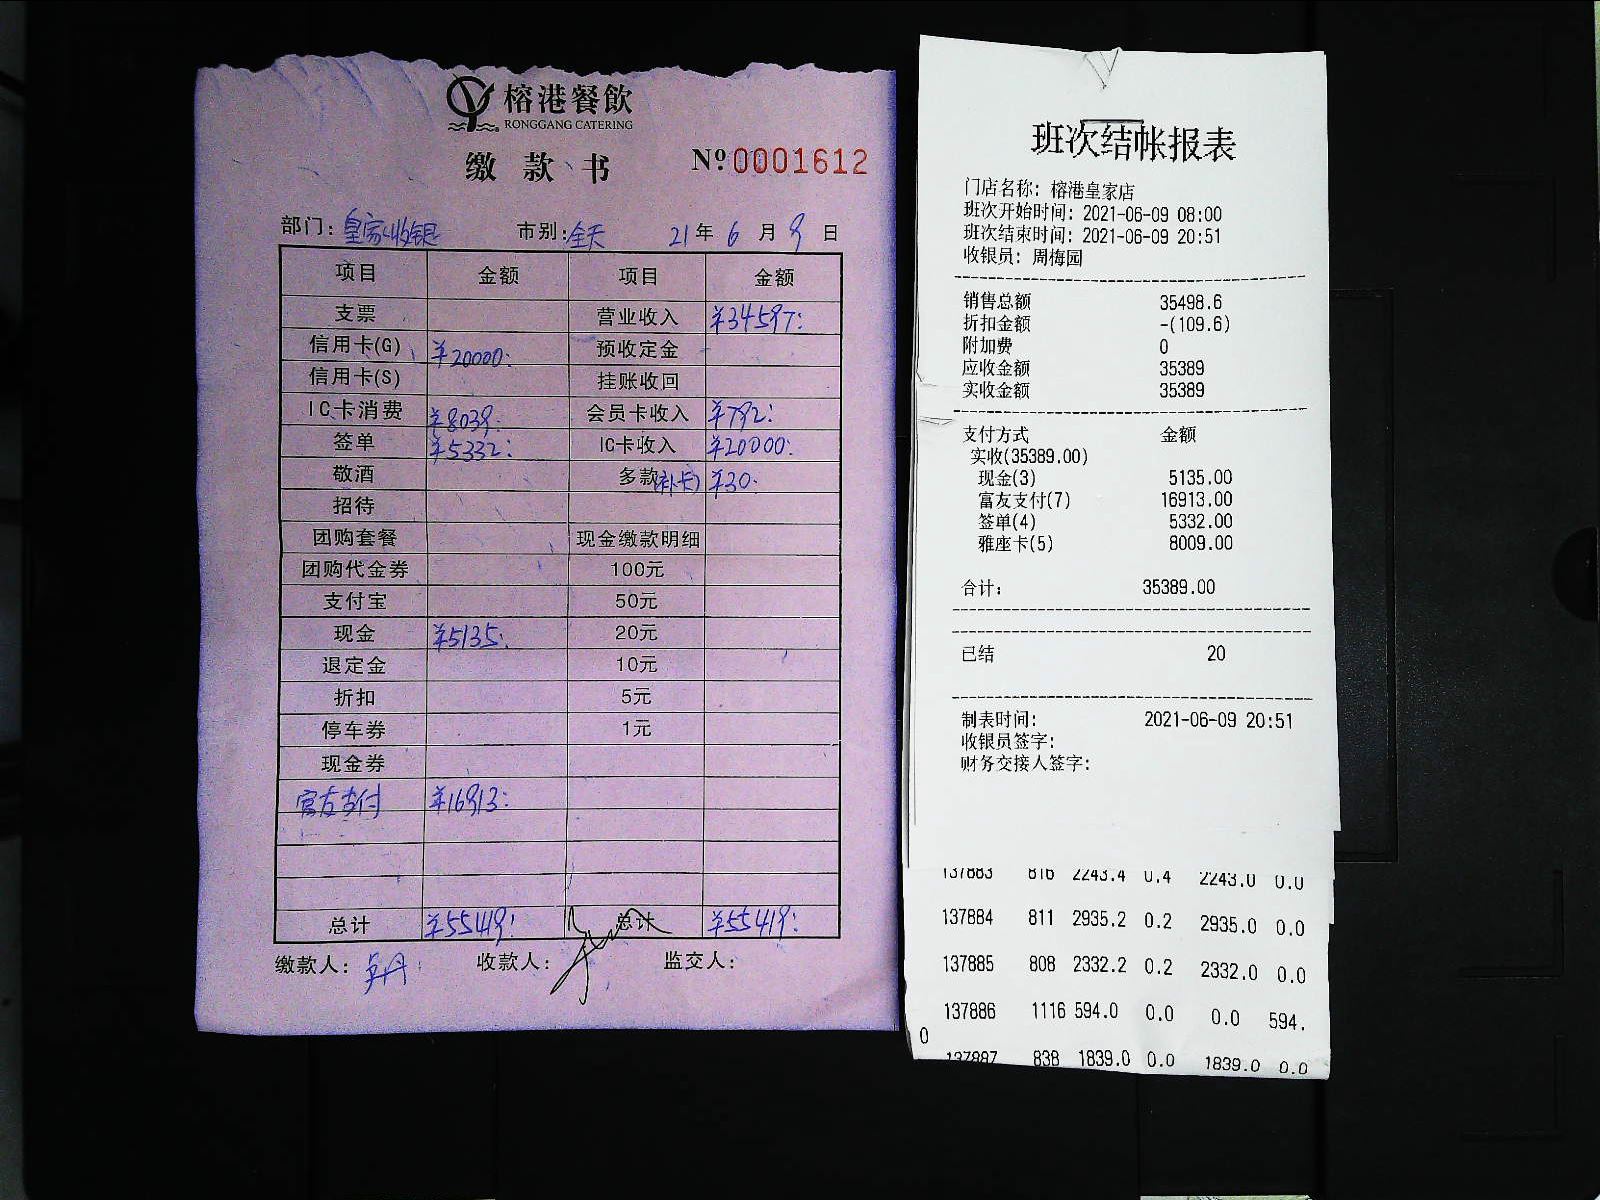 榕港餐飲
RONGGANG CATERING
缴款书 Nº 0001612
部门: 皇家收银 市别: 全天 21年 6月 9日
项目 金额 项目 金额
支票 营业收入 ¥34597:
信用卡(G) ¥20000: 预收定金
信用卡(S) 挂账收回
IC卡消费 ¥8039: 会员卡收入 ¥792:
签单 ¥5332: IC卡收入 ¥20000:
敬酒 多款(补卡) ¥30:
招待
团购套餐 现金缴款明细
团购代金券 100元
支付宝 50元
现金 ¥5135: 20元
退定金 10元
折扣 5元
停车券 1元
现金券
富友支付 ¥16913:
总计 ¥55419: 总计 ¥55419:
缴款人: 收款人: 监交人:
班次结帐报表
门店名称: 榕港皇家店
班次开始时间: 2021-06-09 08:00
班次结束时间: 2021-06-09 20:51
收银员: 周梅园
销售总额 35498.6
折扣金额 -(109.6)
附加费 0
应收金额 35389
实收金额 35389
支付方式 金额
实收(35389.00)
现金(3) 5135.00
富友支付(7) 16913.00
签单(4) 5332.00
雅座卡(5) 8009.00
合计: 35389.00
已结 20
制表时间: 2021-06-09 20:51
收银员签字:
财务交接人签字:
137883 816 2243.4 0.4 2243.0 0.0
137884 811 2935.2 0.2 2935.0 0.0
137885 808 2332.2 0.2 2332.0 0.0
137886 1116 594.0 0.0 0.0 594.
0
137887 838 1839.0 0.0 1839.0 0.0